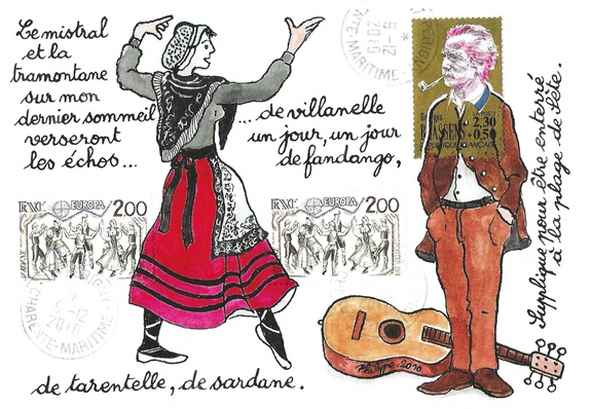 Le mistral
et la
tramontane
sur mon
dernier sommeil
verseront
les échos...
...de villanelle
un jour, un jour
de fandango,
de tarentelle, de sardane.
Supplique pour être enterré
à la plage de Sète.
EUROPA
2.00
EUROPA
2.00
2,30
+0,50
Philippe 2010